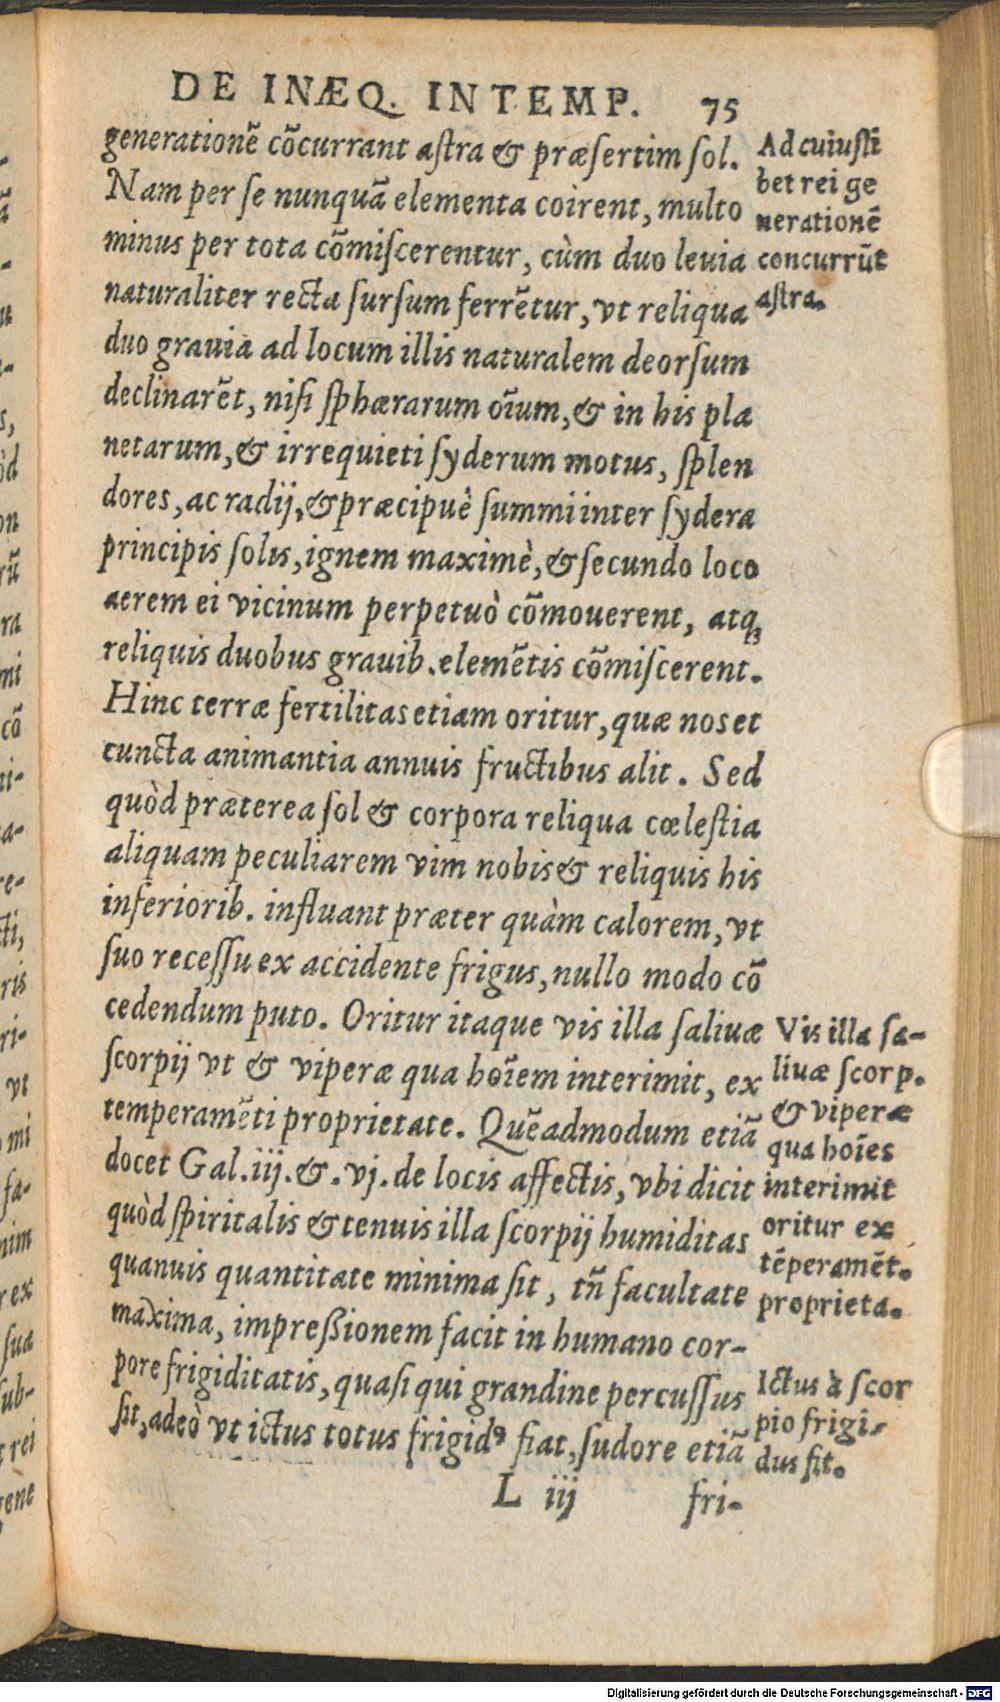 DE INÆQ. INTEMP. 75
generationẽ cõcurrant aſtra & præſertim ſol.
Nam per ſe nunquã elementa coirent, multo
minus per tota cõmiſcerentur, cùm duo leuia
naturaliter recta ſurſum ferrẽtur, vt reliqua
duo grauia ad locum illis naturalem deorſum
declinarẽt, niſi ſphærarum oĩum, & in his pla
netarum, & irrequieti ſyderum motus, ſplen
dores, ac radij, & præcipuè ſummi inter ſydera
principis ſolis, ignem maximè, & ſecundo loco
aerem ei vicinum perpetuò cõmouerent, atq́;
reliquis duobus grauib. elemẽtis cõmiſcerent.
Hinc terræ fertilitas etiam oritur, quæ nos et
cuncta animantia annuis fructibus alit. Sed
quòd præterea ſol & corpora reliqua cœleſtia
aliquam peculiarem vim nobis & reliquis his
inferiorib. influant præter quàm calorem, vt
ſuo receſſu ex accidente frigus, nullo modo cõ
cedendum puto. Oritur itaque vis illa ſaliuæ
ſcorpij vt & viperæ qua hoĩem interimit, ex
temperamẽti proprietate. Quẽadmodum etiã
docet Gal. iij. &. vj. de locis affectis, vbi dicit
quòd ſpiritalis & tenuis illa ſcorpij humiditas
quanuis quantitate minima ſit, tñ facultate
maxima, impreßionem facit in humano cor-
pore frigiditatis, quaſi qui grandine percuſſus
ſit, adeò vt ictus totus frigidꝰ fiat, ſudore etiã
L iij fri-
Ad cuiuſli
bet rei ge
nerationẽ
concurrũt
aſtra.
Vis illa ſa-
liuæ ſcorp.
& viperæ
qua hoĩes
interimit
oritur ex
tẽperamẽt.
proprieta.
Ictus à ſcor
pio frigi-
dus fit.
Digitalisierung gefördert durch die Deutsche Forschungsgemeinschaft - DFG